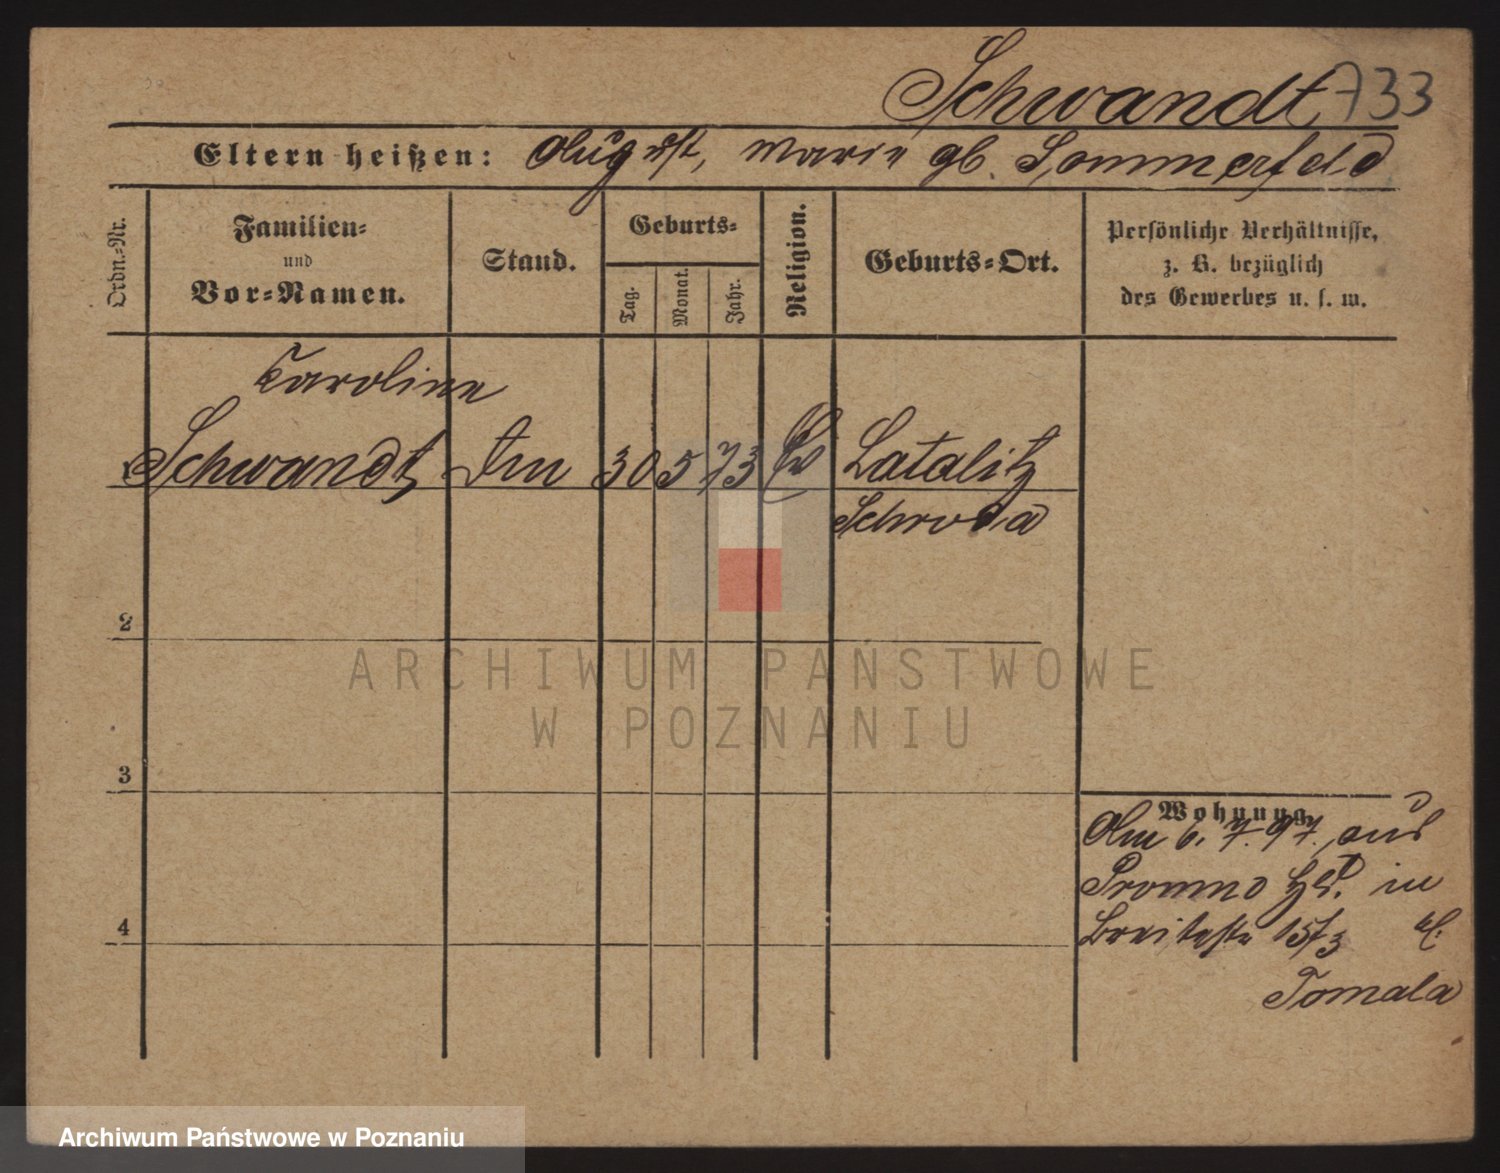 Schwandt 733
Eltern heißen: August, Marie gb. Sommerfeld
Ordn.-Nr.
Familien-
und
Vor-Namen.
Stand.
Geburts-
Tag.
Monat.
Jahr.
Religion.
Geburts-Ort.
Persönliche Verhältnisse,
z. B. bezüglich
des Gewerbes u. s. w.
Caroline
Schwandt 30 5 73 Ev Latalitz
Schroda
2
ARCHIWUM PAŃSTWOWE
W POZNANIU
3
Wohnung.
Am 6. 7. 97. aus
Promno Hld. in
4
Breitestr 15/3
Tomala
Archiwum Państwowe w Poznaniu